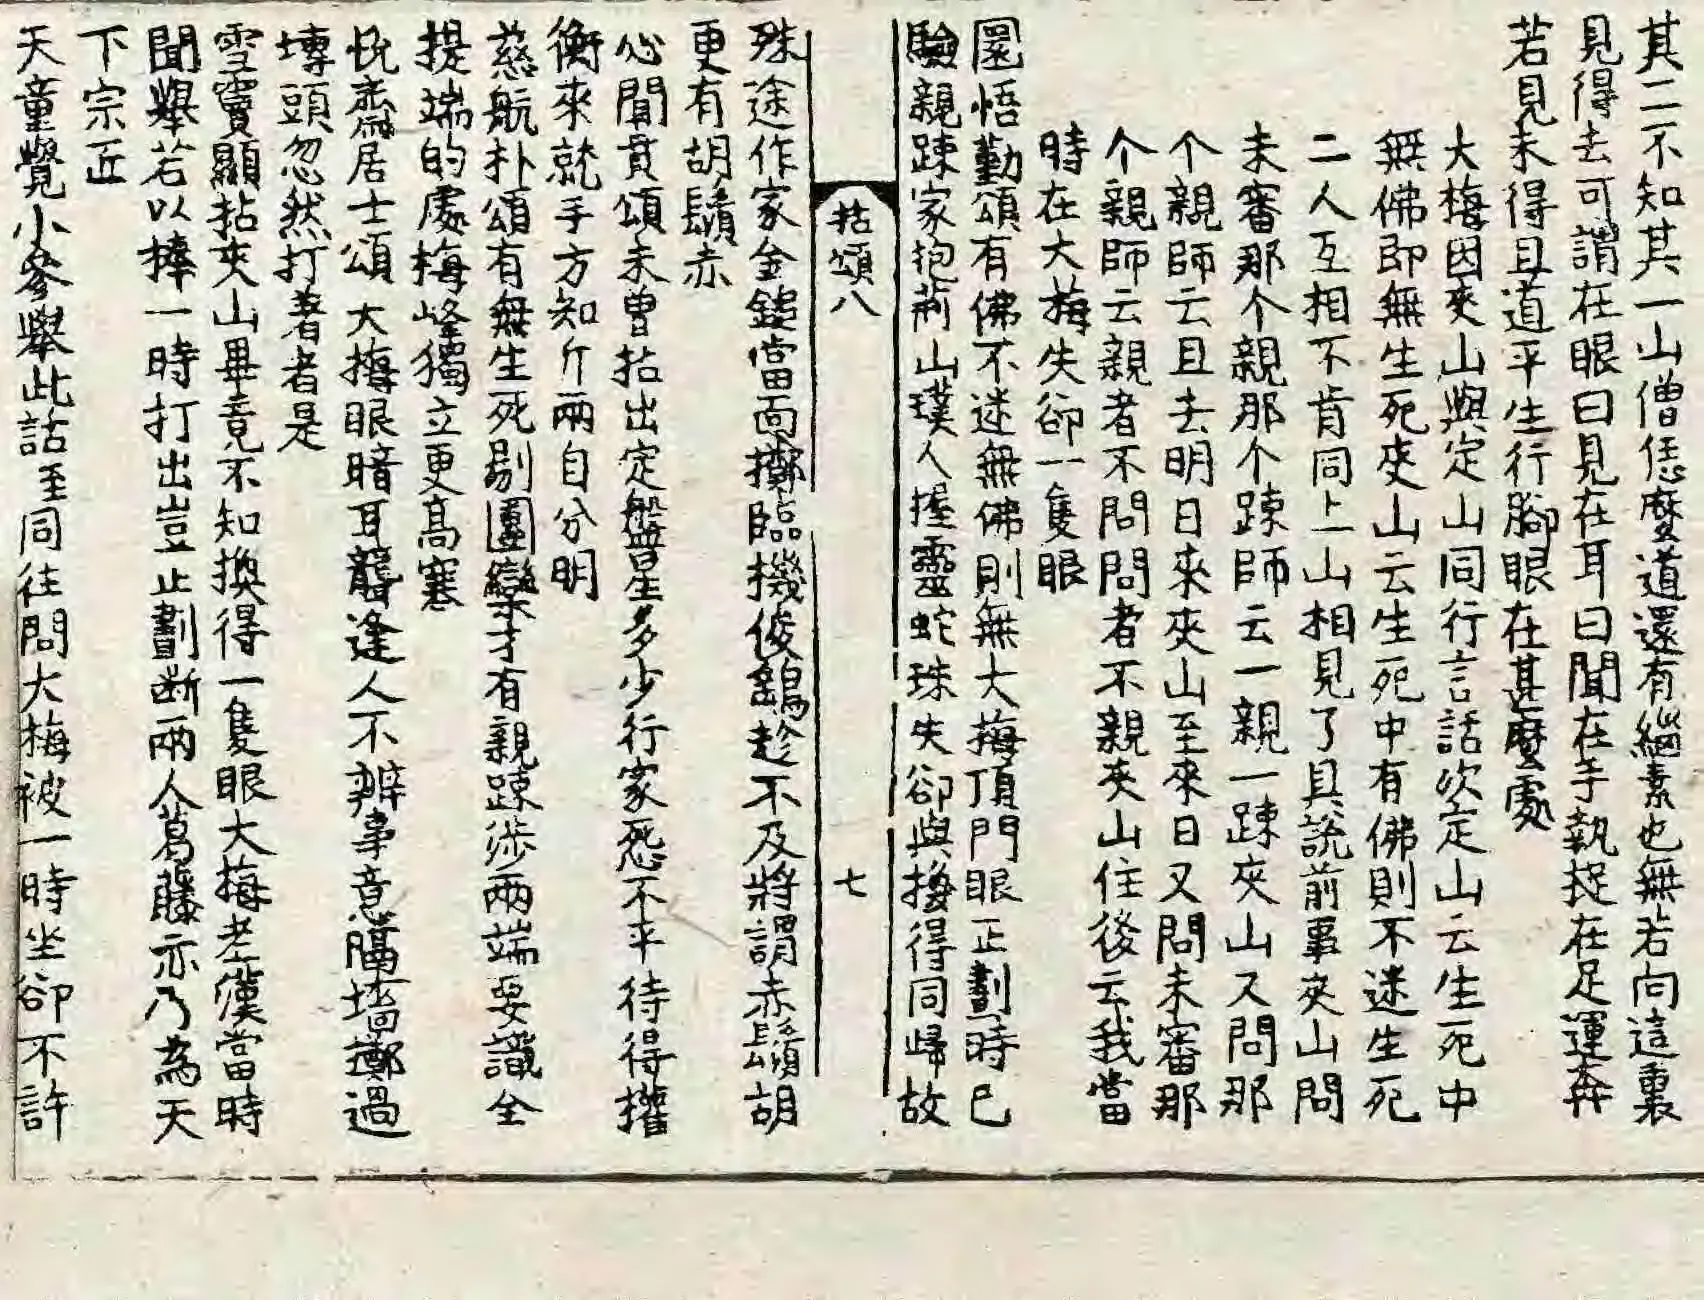 其二不知其一山僧恁麽道還有緇素也無若向這裏
見得去可謂在眼曰見在耳曰聞在手執捉在足運奔
若見未得且道平生行腳眼在甚麽處
大梅因夾山與定山同行言話次定山云生死中
無佛即無生死夾山云生死中有佛則不迷生死
二人互相不肯同上山相見了具說前事夾山問
未審那个親那个踈師云一親一踈夾山又問那
个親師云且去明日來夾山至來日又問未審那
个親師云親者不問問者不親夾山住後云我當
時在大梅失卻一隻眼
圜悟勤頌有佛不迷無佛則無大梅頂門眼正劃時已
驗親踈家抱荊山璞人握靈蛇珠失卻與換得同歸故
拈頌八 七
殊途作家金鎚當面擲臨機俊鷂趁不及將謂赤鬚胡
更有胡鬚赤
心聞賁頌未曾拈出定盤星多少行家恣不平待得權
衡來就手方知斤兩自分明
慈航朴頌有無生死剔團欒才有親踈涉兩端要識全
提端的處梅峰獨立更高寒
悅齋居士頌大梅眼暗耳聾逢人不辨事意隔墻擲過
塼頭忽然打著者是
雪竇顯拈夾山畢竟不知換得一隻眼大梅老漢當時
聞擧若以捧一時打出豈止劃断兩人葛藤亦乃為天
下宗匠
天童覺小參擧此話至同往問大梅被一時坐卻不許